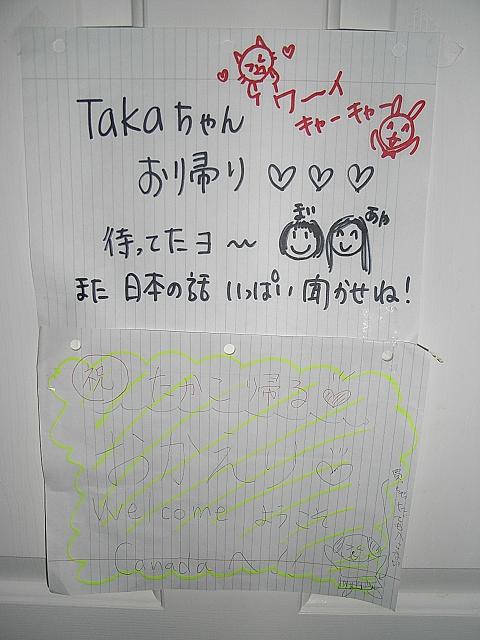 ワーイ
キャーキャー
Takaちゃん
おり帰り♡♡♡
待ってたヨ〜
まい
あゆ
また日本の話いっぱい聞かせね!
祝
たかこ帰る♡
おかえり
Welcome ようこそ
Canadaへ!!